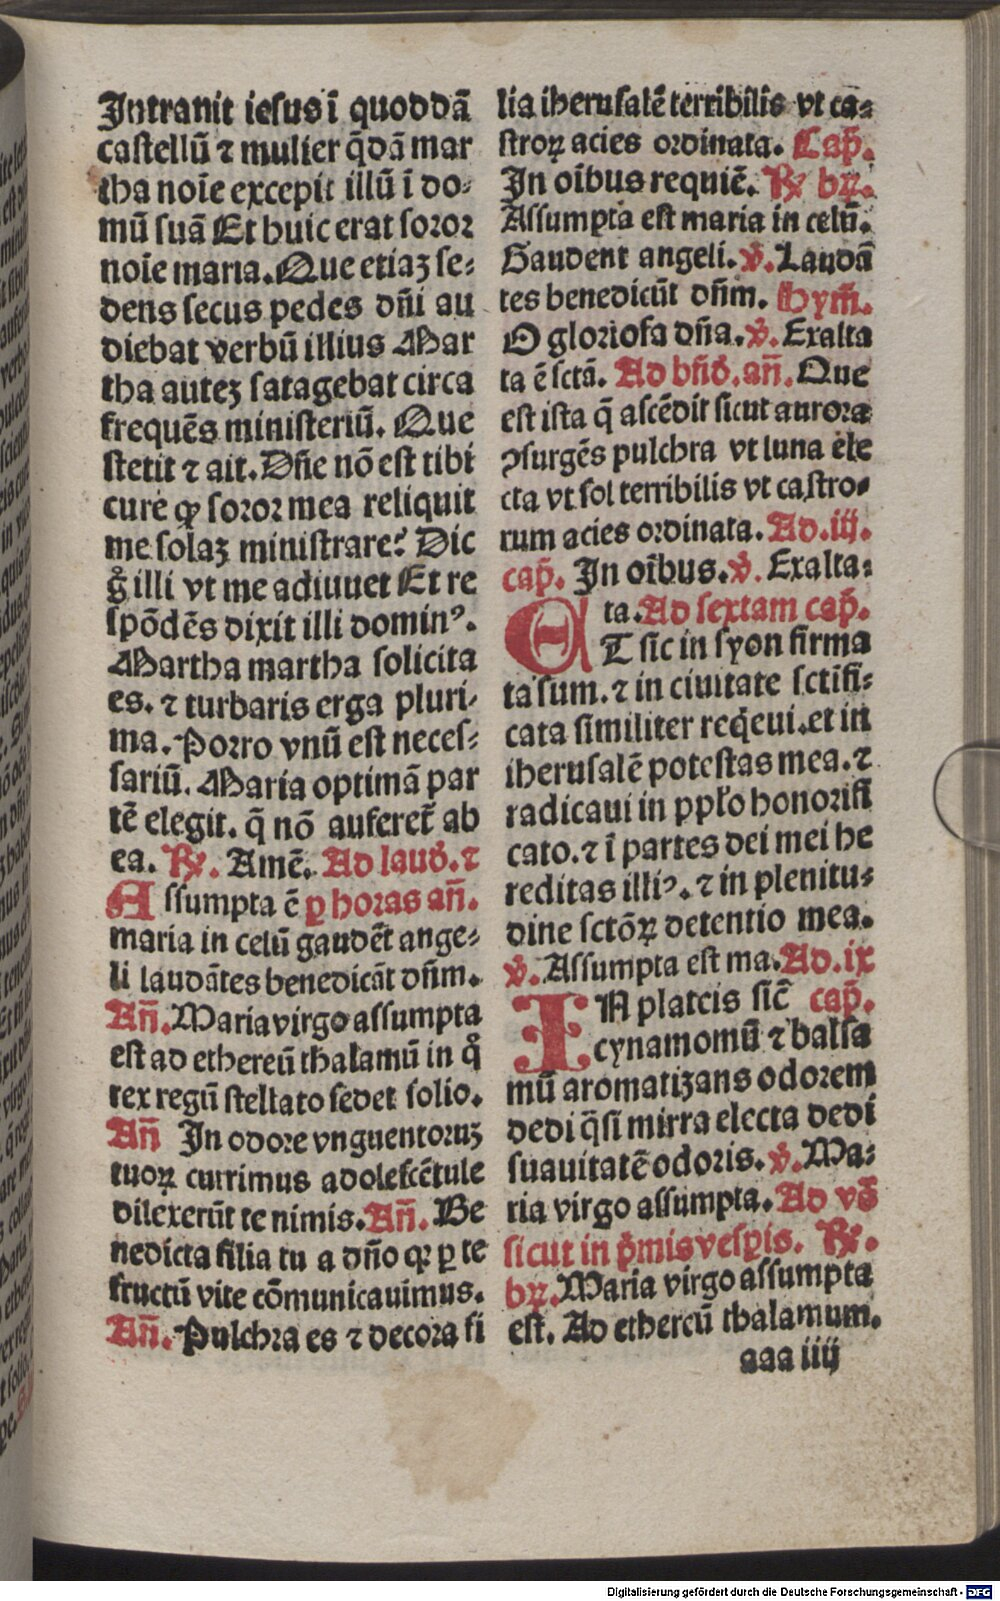 Intrauit iesus ī quoddā
castellū ⁊ mulier q̄dā mar
tha noīe excepit illū ī do⸗
mū suā Et huic erat soror
noīe maria. Que etiaꝫ se⸗
dens secus pedes dn̄i au
diebat verbū illius Mar
tha auteꝫ satagebat circa
frequēs ministeriū. Que
stetit ⁊ ait. Dn̄e nō est tibi
cure ꝙ soror mea reliquit
me solaꝫ ministrare? Dic
gͦ illi vt me adiuuet Et re
spōdēs dixit illi dominꝰ.
Martha martha solicita
es. ⁊ turbaris erga pluri⸗
ma. Porro vnū est neces⸗
sariū. Maria optimā par
tē elegit. q̄ nō auferet̄ ab
ea. ℟. Amē. Ad laud̄. ⁊
Assumpta ē ꝑ horas an̄.
maria in celū gaudēt ange⸗
li laudātes benedicāt dn̄m.
An̄. Maria virgo assumpta
est ad ethereū thalamū in qͦ
rex regū stellato sedet solio.
An̄ In odore vnguentoruꝫ
tuoꝝ currimus adolescētule
dilexerūt te nimis. An̄. Be
nedicta filia tu a dn̄o qꝛ ꝑ te
fructū vite cōmunicauimus.
An̄. Pulchra es ⁊ decora fi
lia iherusalē terribilis vt ca⸗
stroꝝ acies ordinata. Cap̄.
In oībus requiē. ℟ bꝛ̄.
Assumpta est maria in celū.
Gaudent angeli. ℣. Laudā
tes benedicūt dn̄m. Hym̄.
O gloriosa dn̄a. ℣. Exalta
ta ē sctā. Ad bn̄d̄. an̄. Que
est ista q̄ ascēdit sicut aurora
ꝯsurgēs pulchra vt luna ele
cta vt sol terribilis vt castro⸗
rum acies ordinata. Ad .iij.
cap̄. In oībus. ℣. Exalta⸗
ta. Ad sextam cap̄.
ET sic in syon firma
ta sum. ⁊ in ciuitate sctīfi⸗
cata similiter req̄eui. et in
iherusalē potestas mea. ⁊
radicaui in pplo honorifi
cato. ⁊ ī partes dei mei he
reditas illiꝰ. ⁊ in plenitu⸗
dine sctōꝝ detentio mea.
℣. Assumpta est ma. Ad .ix
IN plateis sic̄ cap̄.
cynamomū ⁊ balsa
mū aromatiʒans odorem
dedi q̄si mirra electa dedi
suauitatē odoris. ℣. Ma⸗
ria virgo assumpta. Ad vō
sicut in p̄mis vesꝑis. ℟.
bꝛ̄. Maria virgo assumpta
est. Ad ethereū thalamum.
aaa iiij
Digitalisierung gefördert durch die Deutsche Forschungsgemeinschaft - DFG